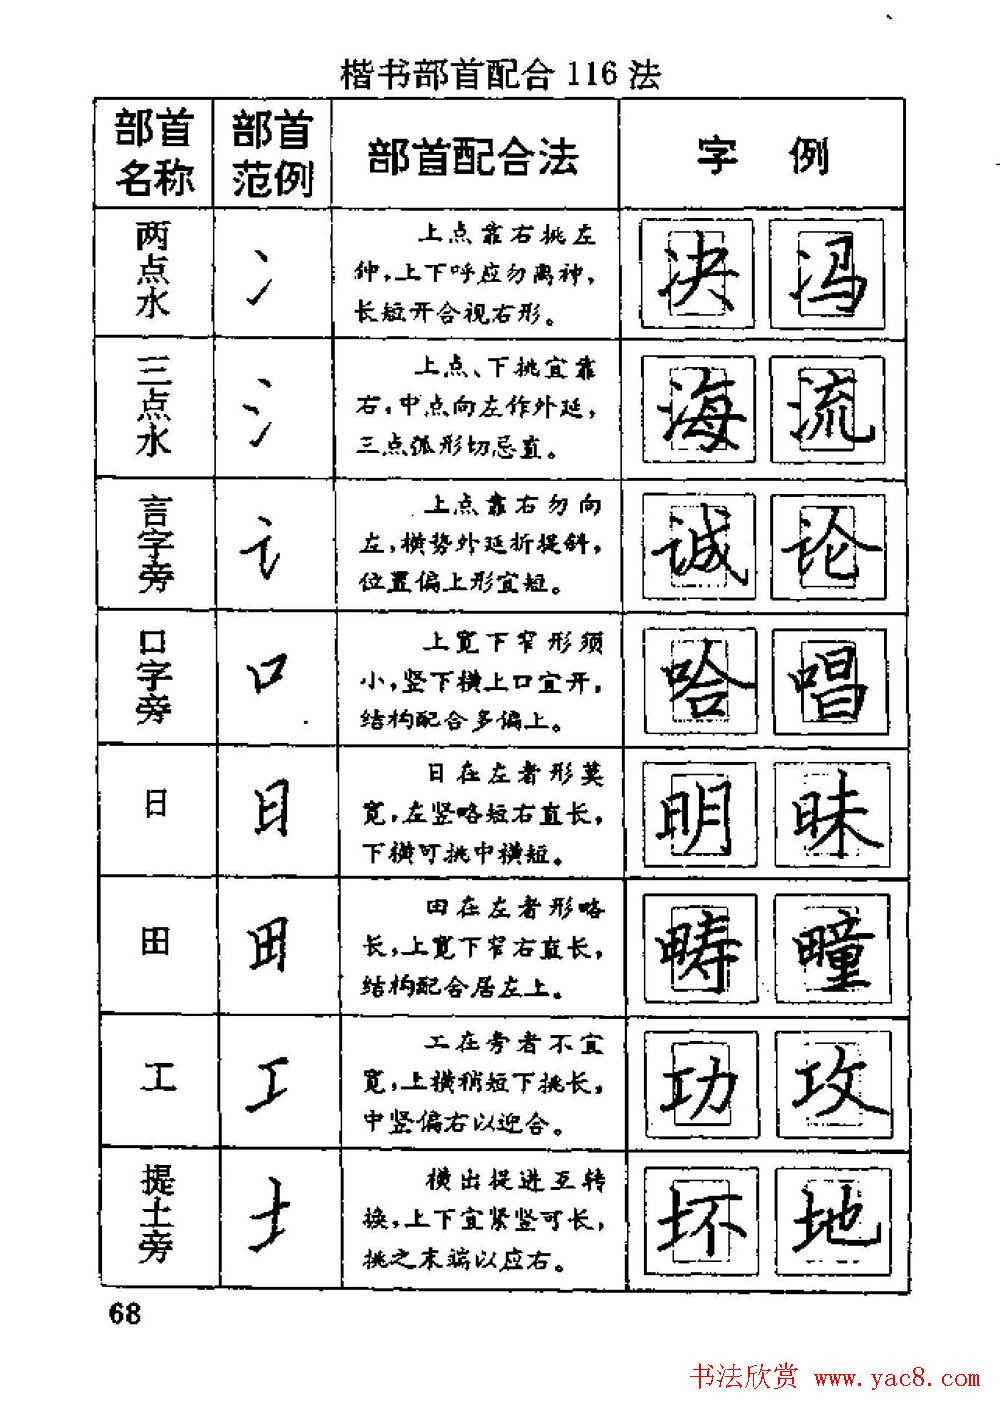 楷书部首配合116法
部首名称 部首范例 部首配合法 字例
两点水 冫 上点靠右挑左
伸，上下呼应勿离神，
长短开合视右形。
决 冯
三点水 氵 上点、下挑宜靠
右，中点向左作外延，
三点弧形切忌直。
海 流
言字旁 讠 上点靠右勿向
左，横势外延折提斜，
位置偏上形宜短。
诚 论
口字旁 口 上宽下窄形须
小，竖下横上口宜开，
结构配合多偏上。
哈 唱
日 日 日在左者形莫
宽，左竖略短右直长，
下横可挑中横短。
明 昧
田 田 田在左者形略
长，上宽下窄右直长，
结构配合居左上。
畴 疃
工 工 工在旁者不宜
宽，上横稍短下挑长，
中竖偏右以迎合。
功 攻
提土旁 土 横出提进互转
换，上下宜紧竖可长，
挑之末端以应右。
坏 地
68
书法欣赏 www.yac8.com